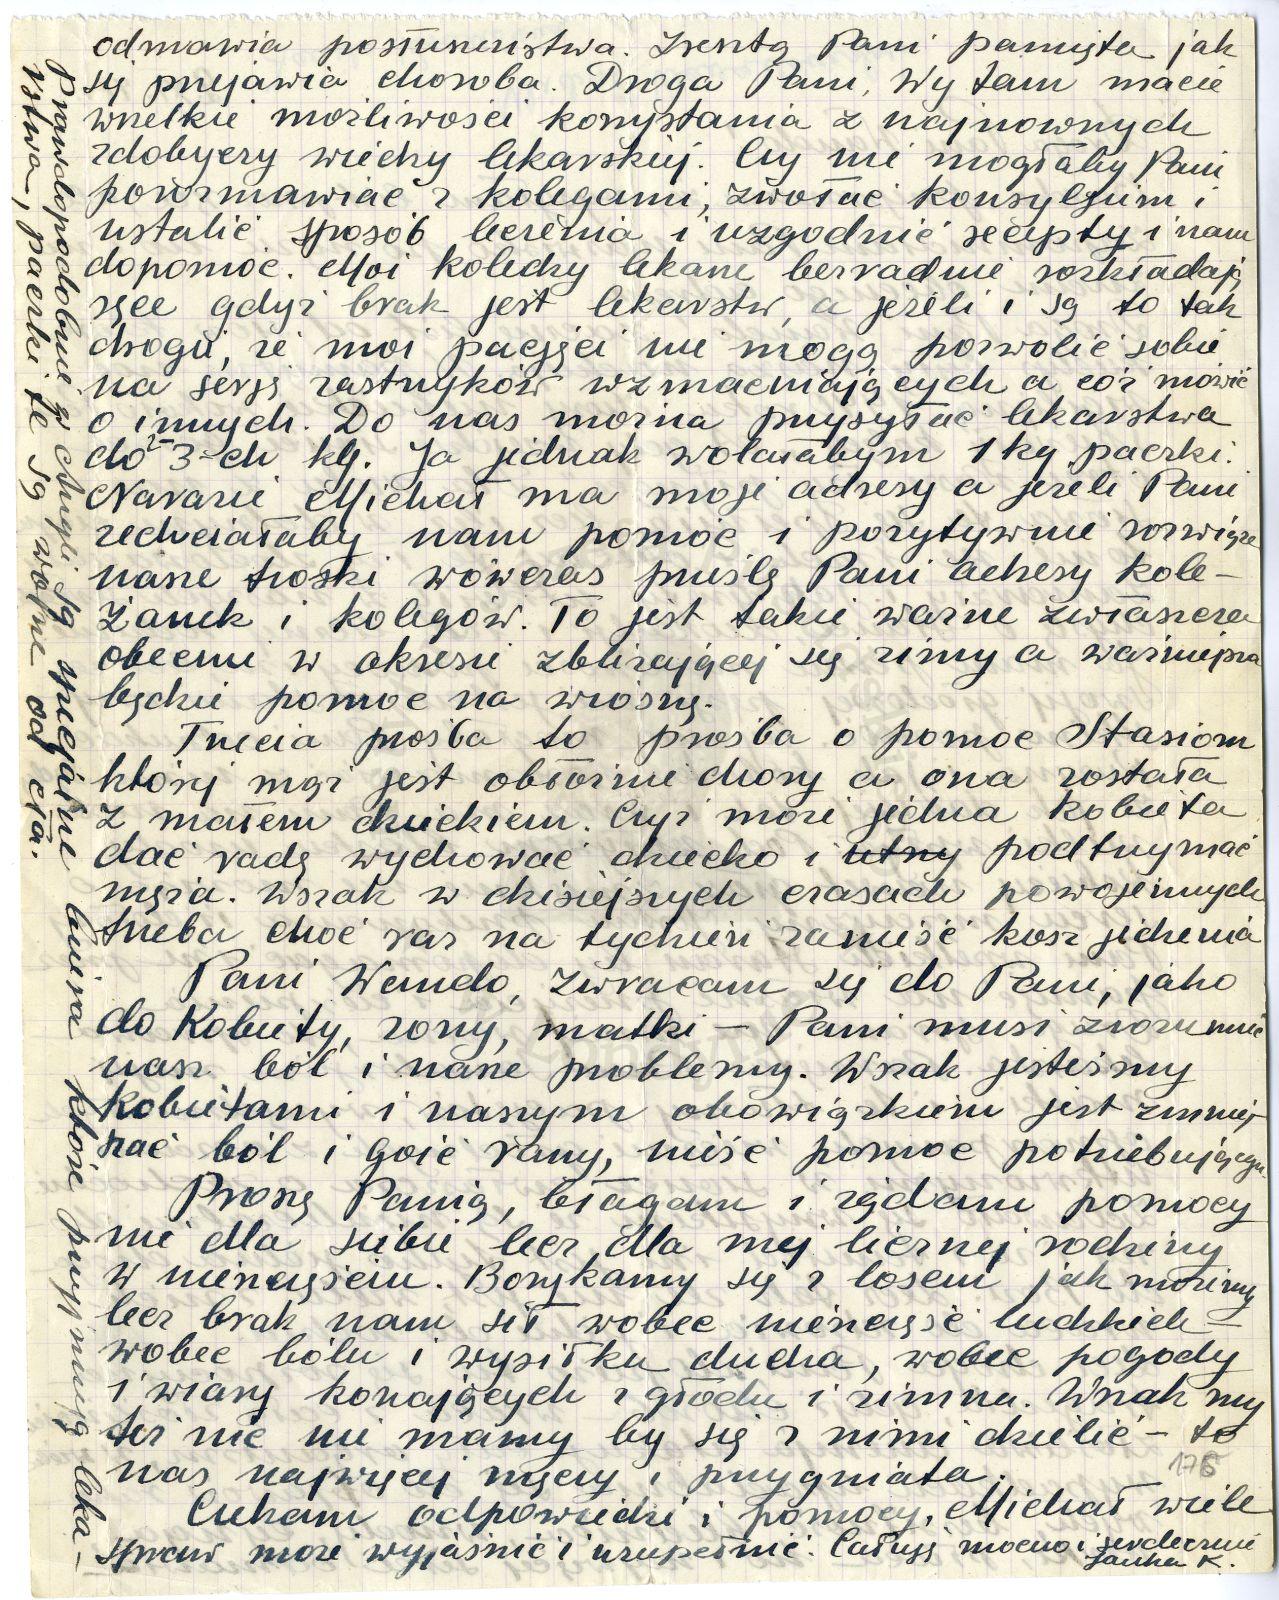 odmawia posłuszeństwa. Zresztą Pani pamięta jak
się przejawia choroba. Droga Pani, Wy tam macie
wszelkie możliwości korzystania z najnowszych
zdobyczy wiedzy lekarskiej. Czy nie mogłaby Pani
porozmawiać z kolegami, zwołać konsylium i
ustalić sposób leczenia i uzgodnić recepty i nam
dopomóc. Moi koledzy lekarze bezradnie rozkładają
ręce gdyż brak jest lekarstw, a jeżeli i są to tak
drogie, że moi pacjęci nie mogą pozwolić sobie
na serję zastrzyków wzmacniających a cóż mówić
o innych. Do nas można przysyłać lekarstwa
do 2-3-ch kg. Ja jednak wolałabym 1 kg paczki.
Narazie Michał ma moje adresy a jeżeli Pani
zechciałaby nam pomóc i pozytywnie rozwiąże
nasze troski wówczas prześlę Pani adresy kole-
żanek i kolegów. To jest takie ważne zwłaszcza
obecnie w okresie zbliżającej się zimy a ważniejsza
będzie pomoc na wiosnę.
Trzecia prośba to prośba o pomoc Stasiom
której mąż jest obłożnie chory a ona została
z małem dzieckiem. Czyż może jedna kobieta
dać radę wychować dziecko i podtrzymać
męża. Wszak w dzisiejszych czasach powojennych
trzeba choć raz na tydzień zanieść kosz jedzenia
Pani Wando, zwracam się do Pani, jako
do Kobiety, żony, matki – Pani musi zrozumieć
nasz ból i nasze problemy. Wszak jesteśmy
kobietami i naszym obowiązkiem jest zmniej
szać ból i goić rany, nieść pomoc potrzebującym.
Proszę Panią, błagam i żądam pomocy
nie dla siebie lecz dla mej licznej rodziny
w nieszczęściu. Borykamy się z losem jak możemy
lecz brak nam sił wobec nieszczęść ludzkich –
wobec bólu i wysiłku ducha, wobec pogody
i wiary konających z głodu i zimna. Wszak my
też nic nie mamy by się z nimi dzielić – to
nas najwięcej męczy i przygniata.
176
Czekam odpowiedzi i pomocy, Michał wiele
spraw może wyjaśnić i uzupełnić. Całuję mocno i serdecznie
Janka K.
Prawdopodobnie w Anglii są specjalne biura które przyjmują leka-
rstwa, paczki te są wolne od cła.